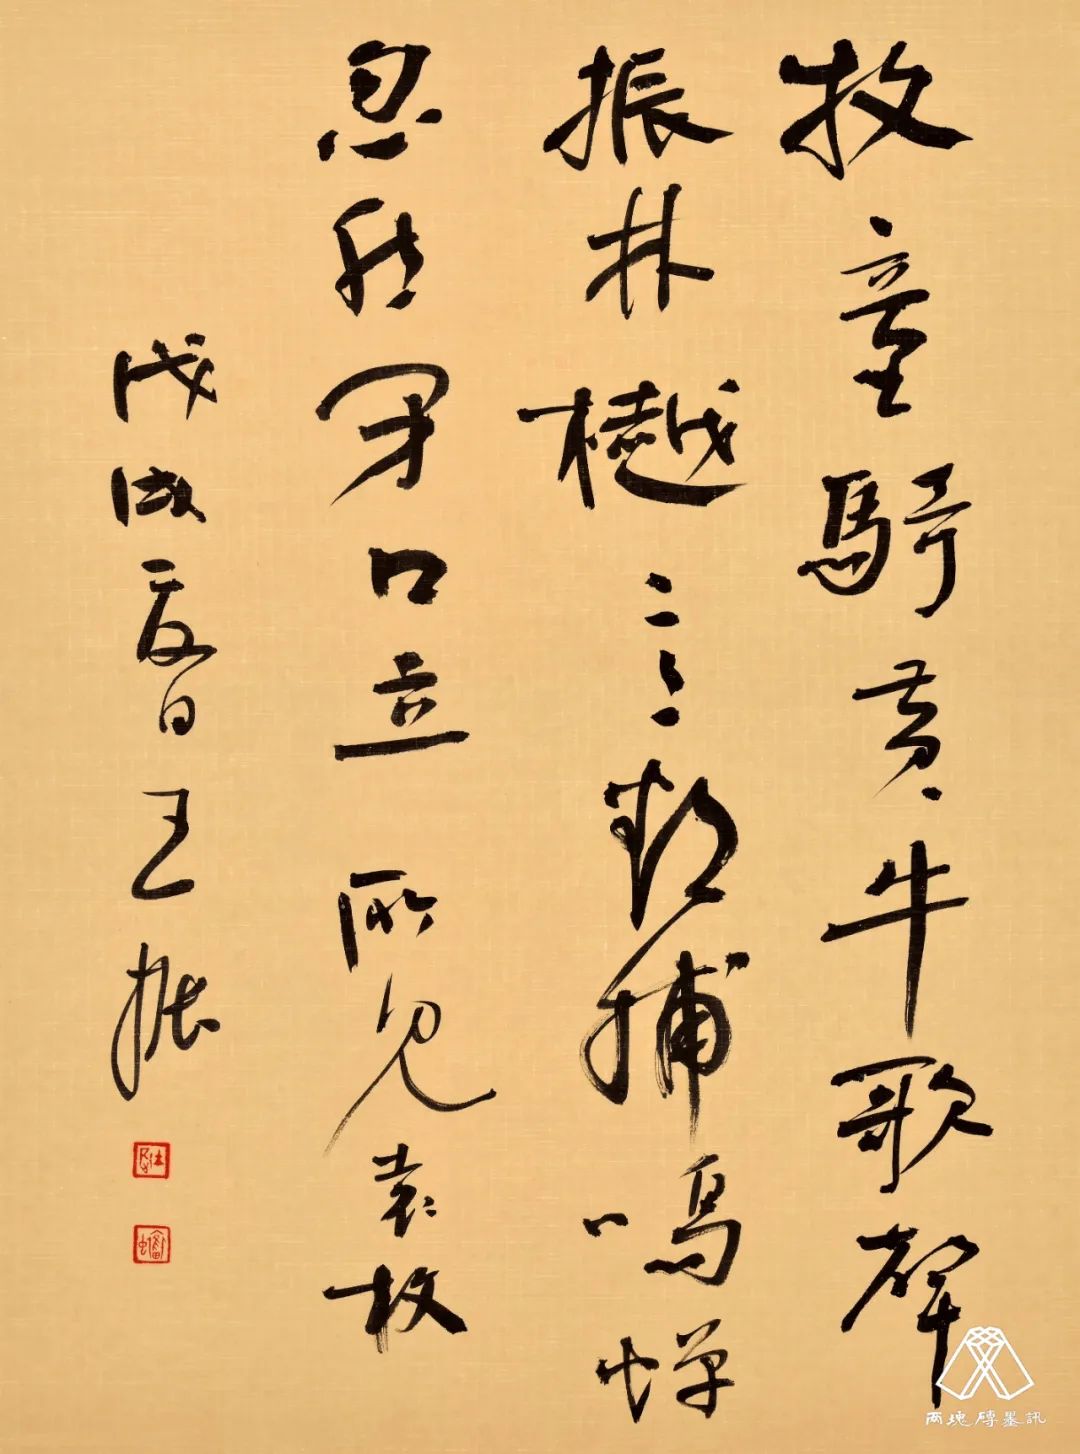 牧童騎黄牛歌聲
振林樾意欲捕鳴蟬
忽然閉口立 所見 袁枚
戊戌夏日王
两塊磚墨訊